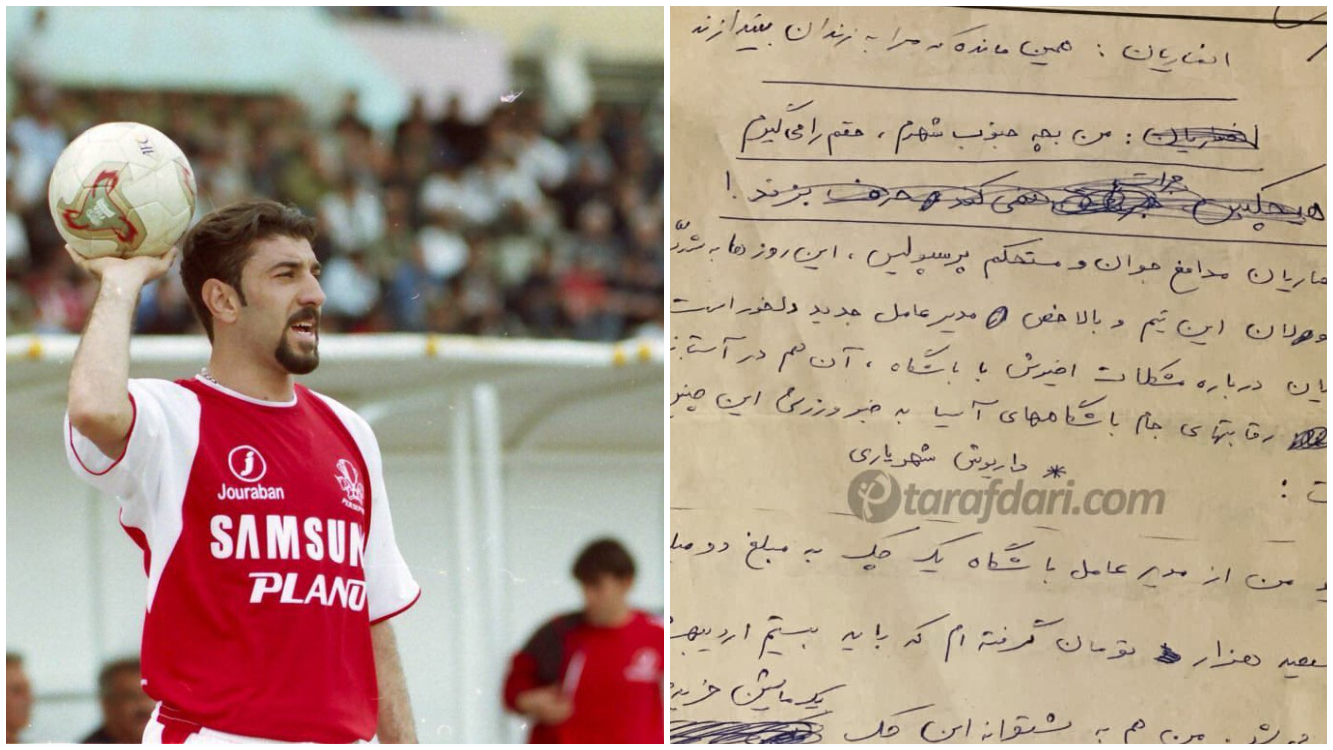 AFC
Jouraban
SAMSUN
PLANO
انصاریان : همین مانده که مرا به زندان بیندازند
انصاریان : من بچه جنوب شهرم ، حقم را می گیرم
هیچکس جرات نمی کند حرف بزند !
صاریان مدافع جوان و مستحکم پرسپولیس ، این روزها به شدت
این تیم و بالاخص مدیر عامل جدید دلخور است
یان درباره مشکلات اخیرش با باشگاه ، آن هم در
رقابتهای جام باشگاههای آسیا به خبر ورزشی این
* داریوش شهریاری
tarafdari.com
ت :
من از مدیر عامل باشگاه یک چک به مبلغ دو
هزار تومان گرفته ام که باید بیستم
یک ماشین
من هم به پشتوانه این چک